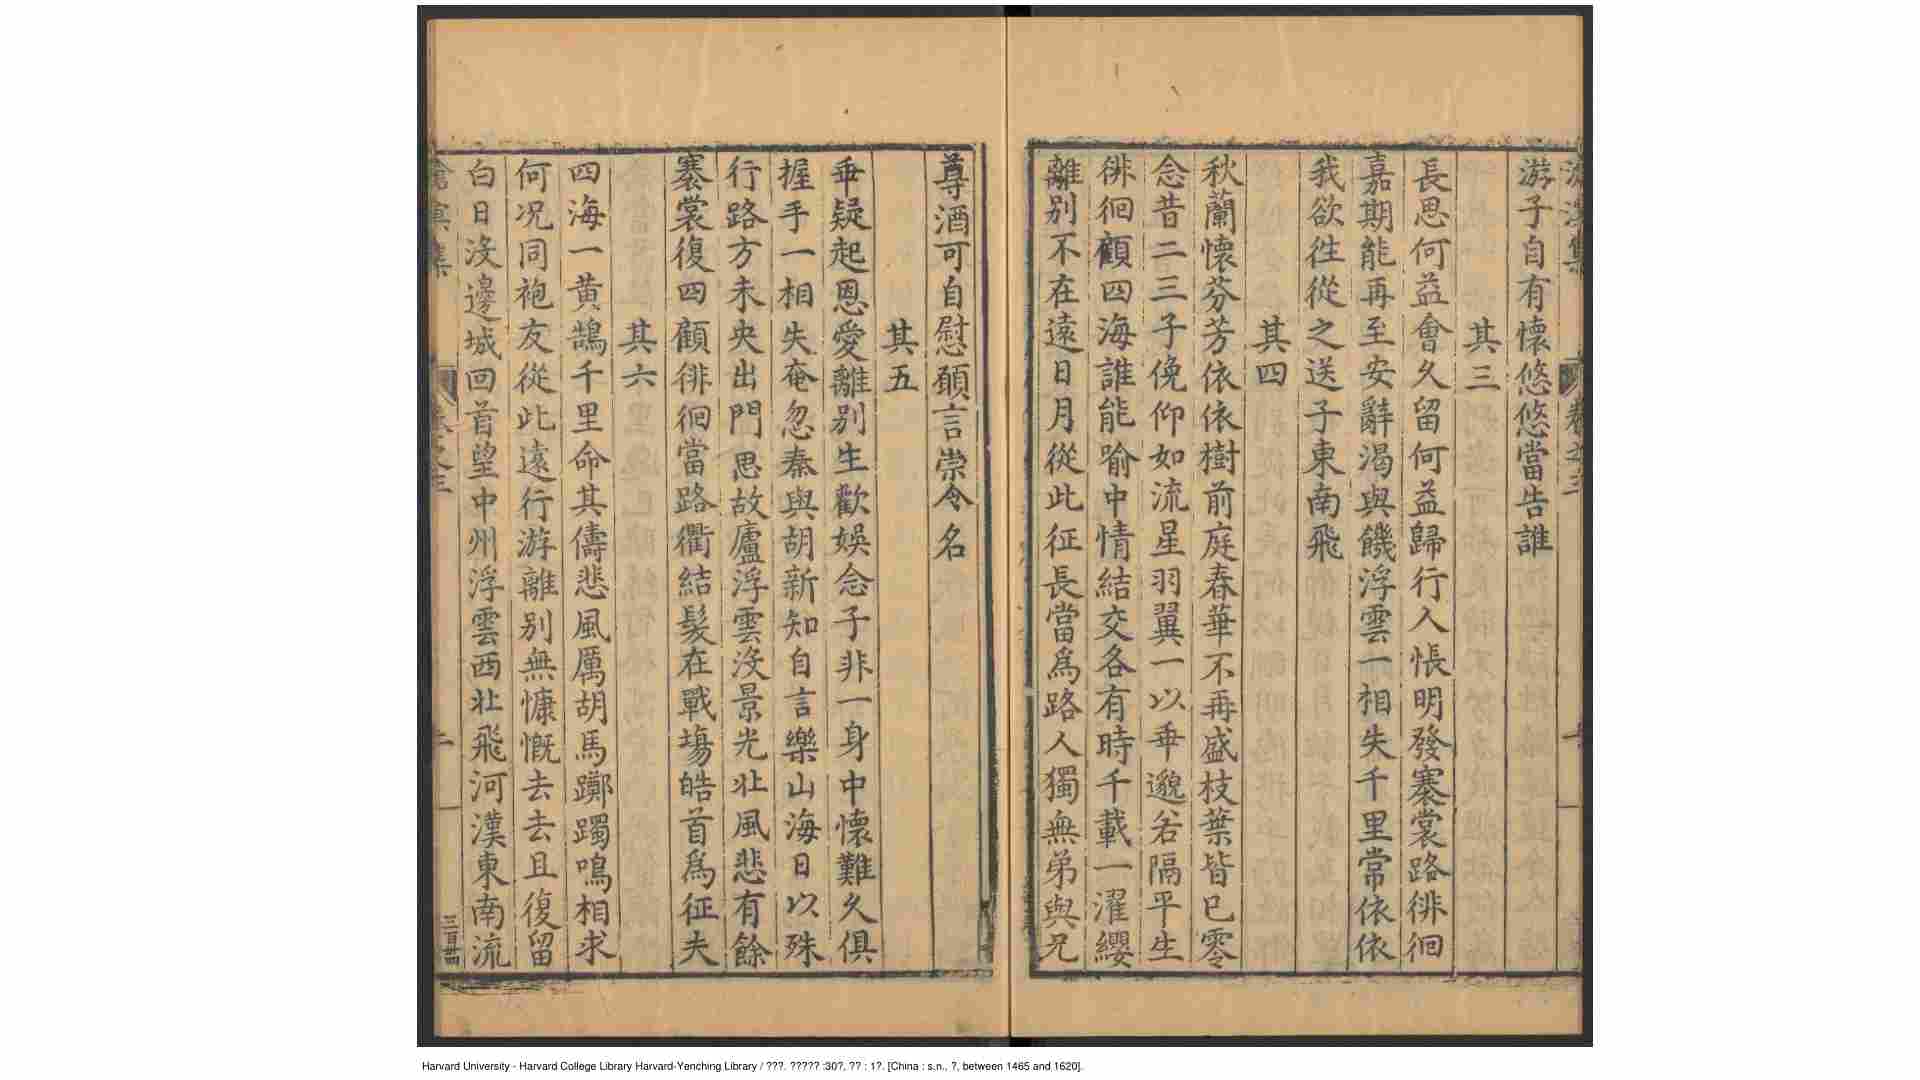 滄溟集
卷之三
游子自有懷悠悠當告誰
其三
長思何益會久留何益歸行入悵明發褰裳路徘徊
嘉期能再至安辭渴與饑浮雲一相失千里常依依
我欲往從之送子東南飛
其四
秋蘭懷芬芳依依樹前庭春華不再盛枝葉皆已零
念昔二三子俛仰如流星羽翼一以乖邈若隔平生
徘徊顧四海誰能喻中情結交各有時千載一濯纓
離別不在遠日月從此征長當爲路人獨無弟與兄
尊酒可自慰願言崇令名
其五
乖疑起恩愛離別生歡娛念子非一身中懷難久俱
握手一相失奄忽秦與胡新知自言樂山海日以殊
行路方未央出門思故廬浮雲沒景光北風悲有餘
褰裳復四顧徘徊當路衢結髮在戰場皓首爲征夫
其六
四海一黄鵠千里命其儔悲風厲胡馬躑躅鳴相求
何况同袍友從此遠行游離別無慷慨去去且復留
白日沒邊城回首望中州浮雲西北飛河漢東南流
滄溟集
卷之三
二
三百卌四
Harvard University - Harvard College Library Harvard-Yenching Library / ???. ????? :30?, ?? : 1?. [China : s.n., ?, between 1465 and 1620].